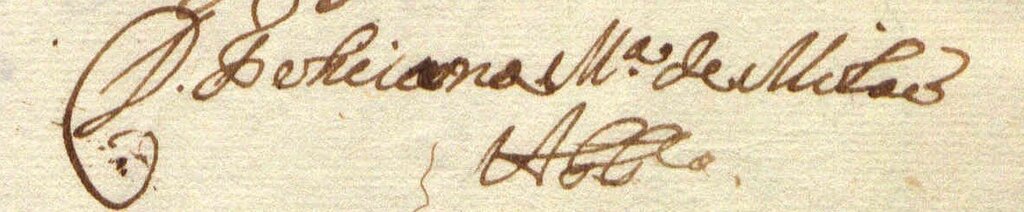 D. Feliciana Mª. de Milaõ
Abb.ª